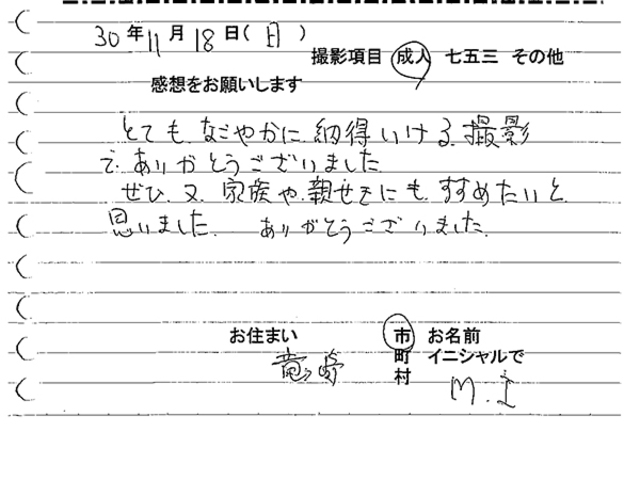 30年11月18日(日)
撮影項目 成人 七五三 その他
感想をお願いします
とても なごやかに 納得いける 撮影
で ありがとうございました
ぜひ 又 家族や 親せきにも すすめたいと
思いました ありがとうございました
お住まい 竜ヶ崎 市 町 村
お名前 イニシャルで
M.I